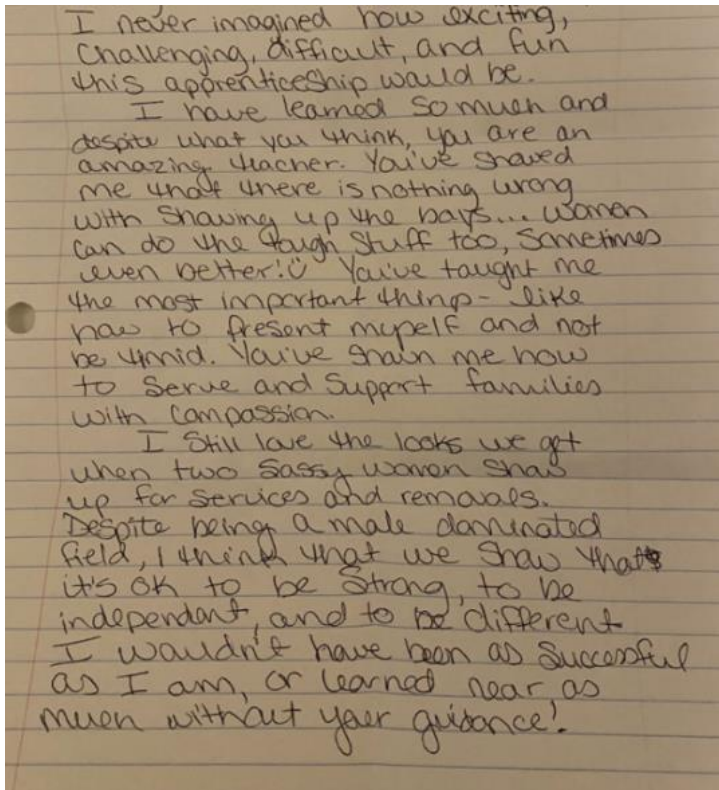 I never imagined how exciting,
challenging, difficult, and fun
this apprenticeship would be.
I have learned so much and
despite what you think, you are an
amazing teacher. You've showed
me that there is nothing wrong
with showing up the boys... women
can do the tough stuff too, sometimes
even better! ☺ You've taught me
the most important things - like
how to present myself and not
be timid. You've shown me how
to serve and support families
with compassion.
I still love the looks we get
when two sassy women show
up for services and removals.
Despite being a male dominated
field, I think that we show that
it's ok to be strong, to be
independent, and to be different
I wouldn't have been as successful
as I am, or learned near as
much without your guidance!